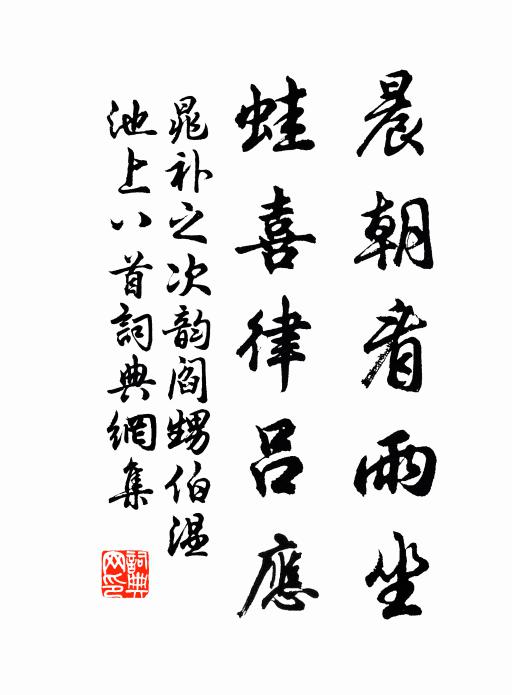 晨朝看雨坐
蛙喜律吕應
晁补之次韵阎甥伯温
池上八首詞典網集
詞典網印